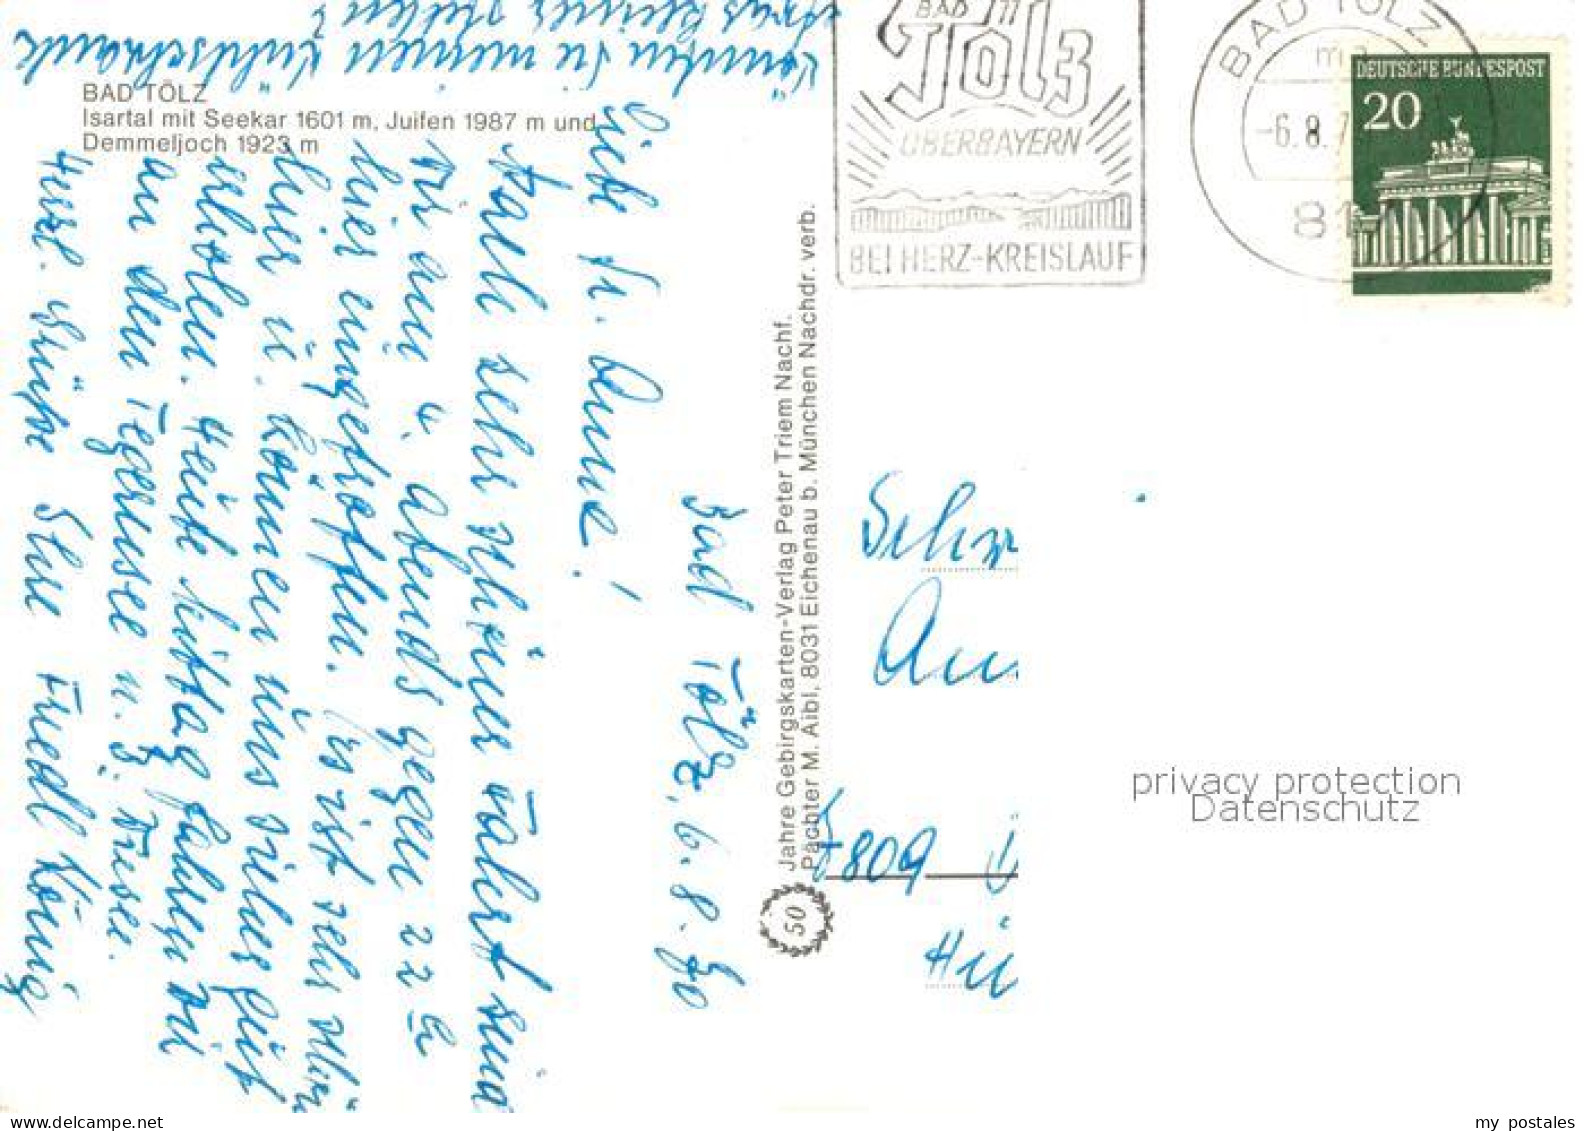 BAD TÖLZ
Isartal mit Seekar 1601 m, Juifen 1987 m und
Demmeljoch 1923 m
Bad Tölz, 6.8.70
Liebe Fr. Anne!
Nach sehr schöner Fahrt sind
wir am 4. abends gegen 22 h
hier eingetroffen. Es ist sehr schön
hier u. können uns sicher gut
erholen. Heute Mittag fahren wir
an den Tegernsee u. Schliersee.
Herzl. Grüße Ihre Friedl König
Könnten Sie meinen Kühlschrank
etwas kleiner stellen?
Jahre Gebirgskarten-Verlag Peter Triem Nachf.
Pächter M. Aibl, 8031 Eichenau b. München Nachdr. verb.
50
BAD
Tölz
OBERBAYERN
BEI HERZ-KREISLAUF
BAD TÖLZ
-6.8.7
DEUTSCHE BUNDESPOST
20
809
privacy protection
Datenschutz
www.delcampe.net
my_postales